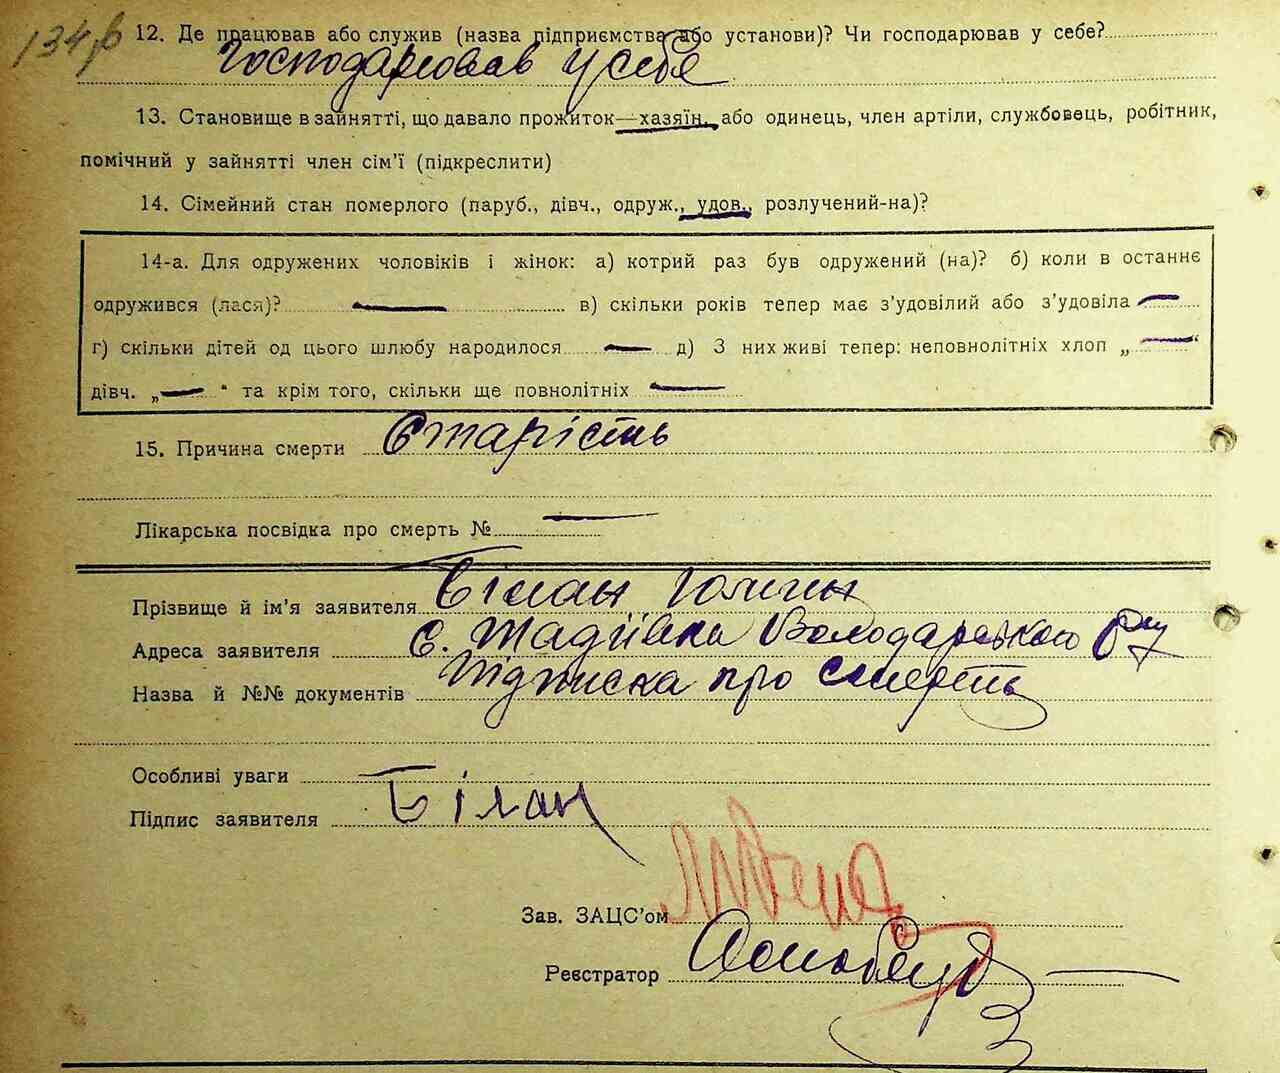 134,б
12. Де працював або служив (назва підприємства або установи)? Чи господарював у себе?
господарював у себе
13. Становище в зайнятті, що давало прожиток—хазяїн, або одинець, член артіли, службовець, робітник,
помічний у зайнятті член сім'ї (підкреслити)
14. Сімейний стан померлого (паруб., дівч., одруж., удов., розлучений-на)?
14-а. Для одружених чоловіків і жінок: а) котрий раз був одружений (на)? б) коли в останнє
одружився (лася)? — в) скільки років тепер має з'удовілий або з'удовіла —
г) скільки дітей од цього шлюбу народилося — д) З них живі тепер: неповнолітніх хлоп „—“
дівч. „—“ та крім того, скільки ще повнолітніх —
15. Причина смерти Старість
Лікарська посвідка про смерть № —
Прізвище й ім'я заявителя Білан
Адреса заявителя с. Тадіївка Володарського р-ну
Назва й №№ документів Підписка про смерть
Особливі уваги
Підпис заявителя Білан
Зав. ЗАЦС'ом
Реєстратор